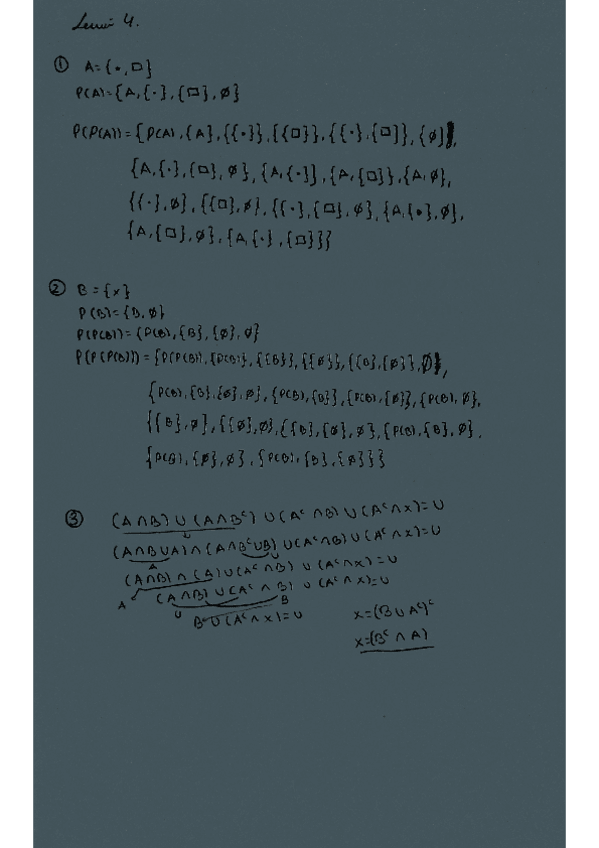 4.
① A={•,□}
P(A)={A,{•},{□},∅}
P(P(A))={P(A),{A},{{•}},{{□}},{{•},{□}},{∅},
{A,{•},{□},∅},{A,{•}},{A,{□}},{A,∅},
{{•},∅},{{□},∅},{{•},{□},∅},{A,{•},∅},
{A,{□},∅},{A,{•},{□}}}
② B={x}
P(B)={B,∅}
P(P(B))={P(B),{B},{∅},∅}
P(P(P(B)))={P(P(B)),{P(B)},{{B}},{{∅}},{{B},{∅}},∅,
{P(B),{B},{∅},∅},{P(B),{B}},{P(B),{∅}},{P(B),∅},
{{B},∅},{{∅},∅},{{B},{∅},∅},{P(B),{B},∅},
{P(B),{∅},∅},{P(B),{B},{∅}}}
③ (A∩B)∪(A∩Bᶜ)∪(Aᶜ∩B)∪(Aᶜ∩x)=U
(A∩B∪A)∩(A∩Bᶜ∪B)∪(Aᶜ∩B)∪(Aᶜ∩x)=U
A U
(A∩B)∩(A)∪(Aᶜ∩B)∪(Aᶜ∩x)=U
A (A∩B)∪(Aᶜ∩B)∪(Aᶜ∩x)=U
U B
Bᶜ∪(Aᶜ∩x)=U
x=(B∪Aᶜ)ᶜ
x=(Bᶜ∩A)